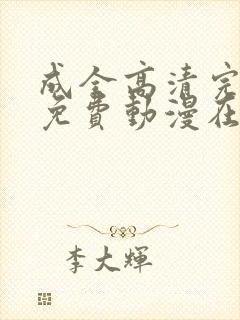 成全高清完
免費動漫在
李大輝